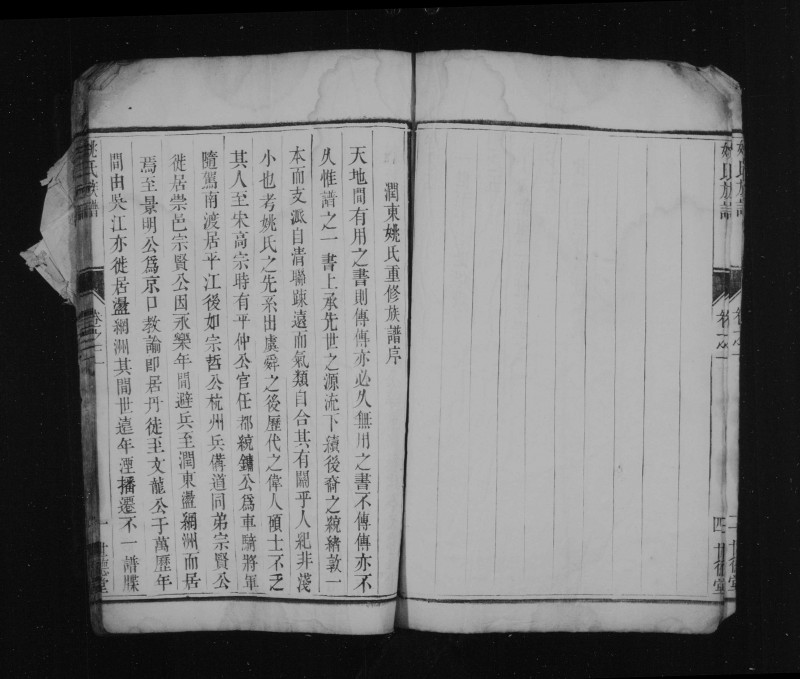 姚氏族譜
四
世德堂
潤東姚氏重修族譜序
天地間有用之書則傳傳亦必久無用之書不傳傳亦不
久惟譜之一書上承先世之源流下續後裔之統緒敦一
本而支派自清聯疎遠而氣類自合其有關乎人紀非淺
小也考姚氏之先系出虞舜之後歷代之偉人碩士不乏
其人至宋高宗時有平仲公官任都統鏞公爲車騎將軍
隨駕南渡居平江後如宗哲公杭州兵備道同弟宗賢公
徙居崇邑宗賢公因永樂年間避兵至潤東盪網洲而居
焉至景明公爲京口教諭即居丹徒至文龍公于萬歷年
間由吳江亦徙居盪網洲其間世遠年湮播遷不一譜牒
姚氏族譜
卷之一
一
世德堂